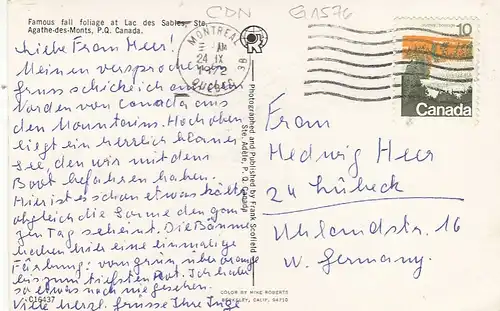 CDN G1576
Famous fall foliage at Lac des Sables, Ste.
Agathe-des-Monts, P.Q. Canada.
Liebe Frau Heer!
Meinen versprochenen
Gruss schicke ich aus dem
Norden von Canada aus
den Mountains. Hoch oben
liegt ein herrlich blauer
See, den wir mit dem
Boot befahren haben.
Hier ist es schon etwas kälter
obgleich die Sonne den gan-
zen Tag scheint. Die Bäume
haben hier eine einmalige
Färbung: vom grün über orange
bis zum tiefsten Rot. Ich habe
so etwas noch nie gesehen.
Viele herzl. Grüsse Ihre Inge
C16437
MONTREAL
AM
24 IX
1972
QUEBEC
Photographed and Published by Frank Scofield
Ste. Adèle, P.Q. Canada
COLOR BY MIKE ROBERTS
BERKELEY, CALIF. 94710
10
Canada
Frau
Hedwig Heer
24 Lübeck
Uhlandstr. 16
W. Germany.